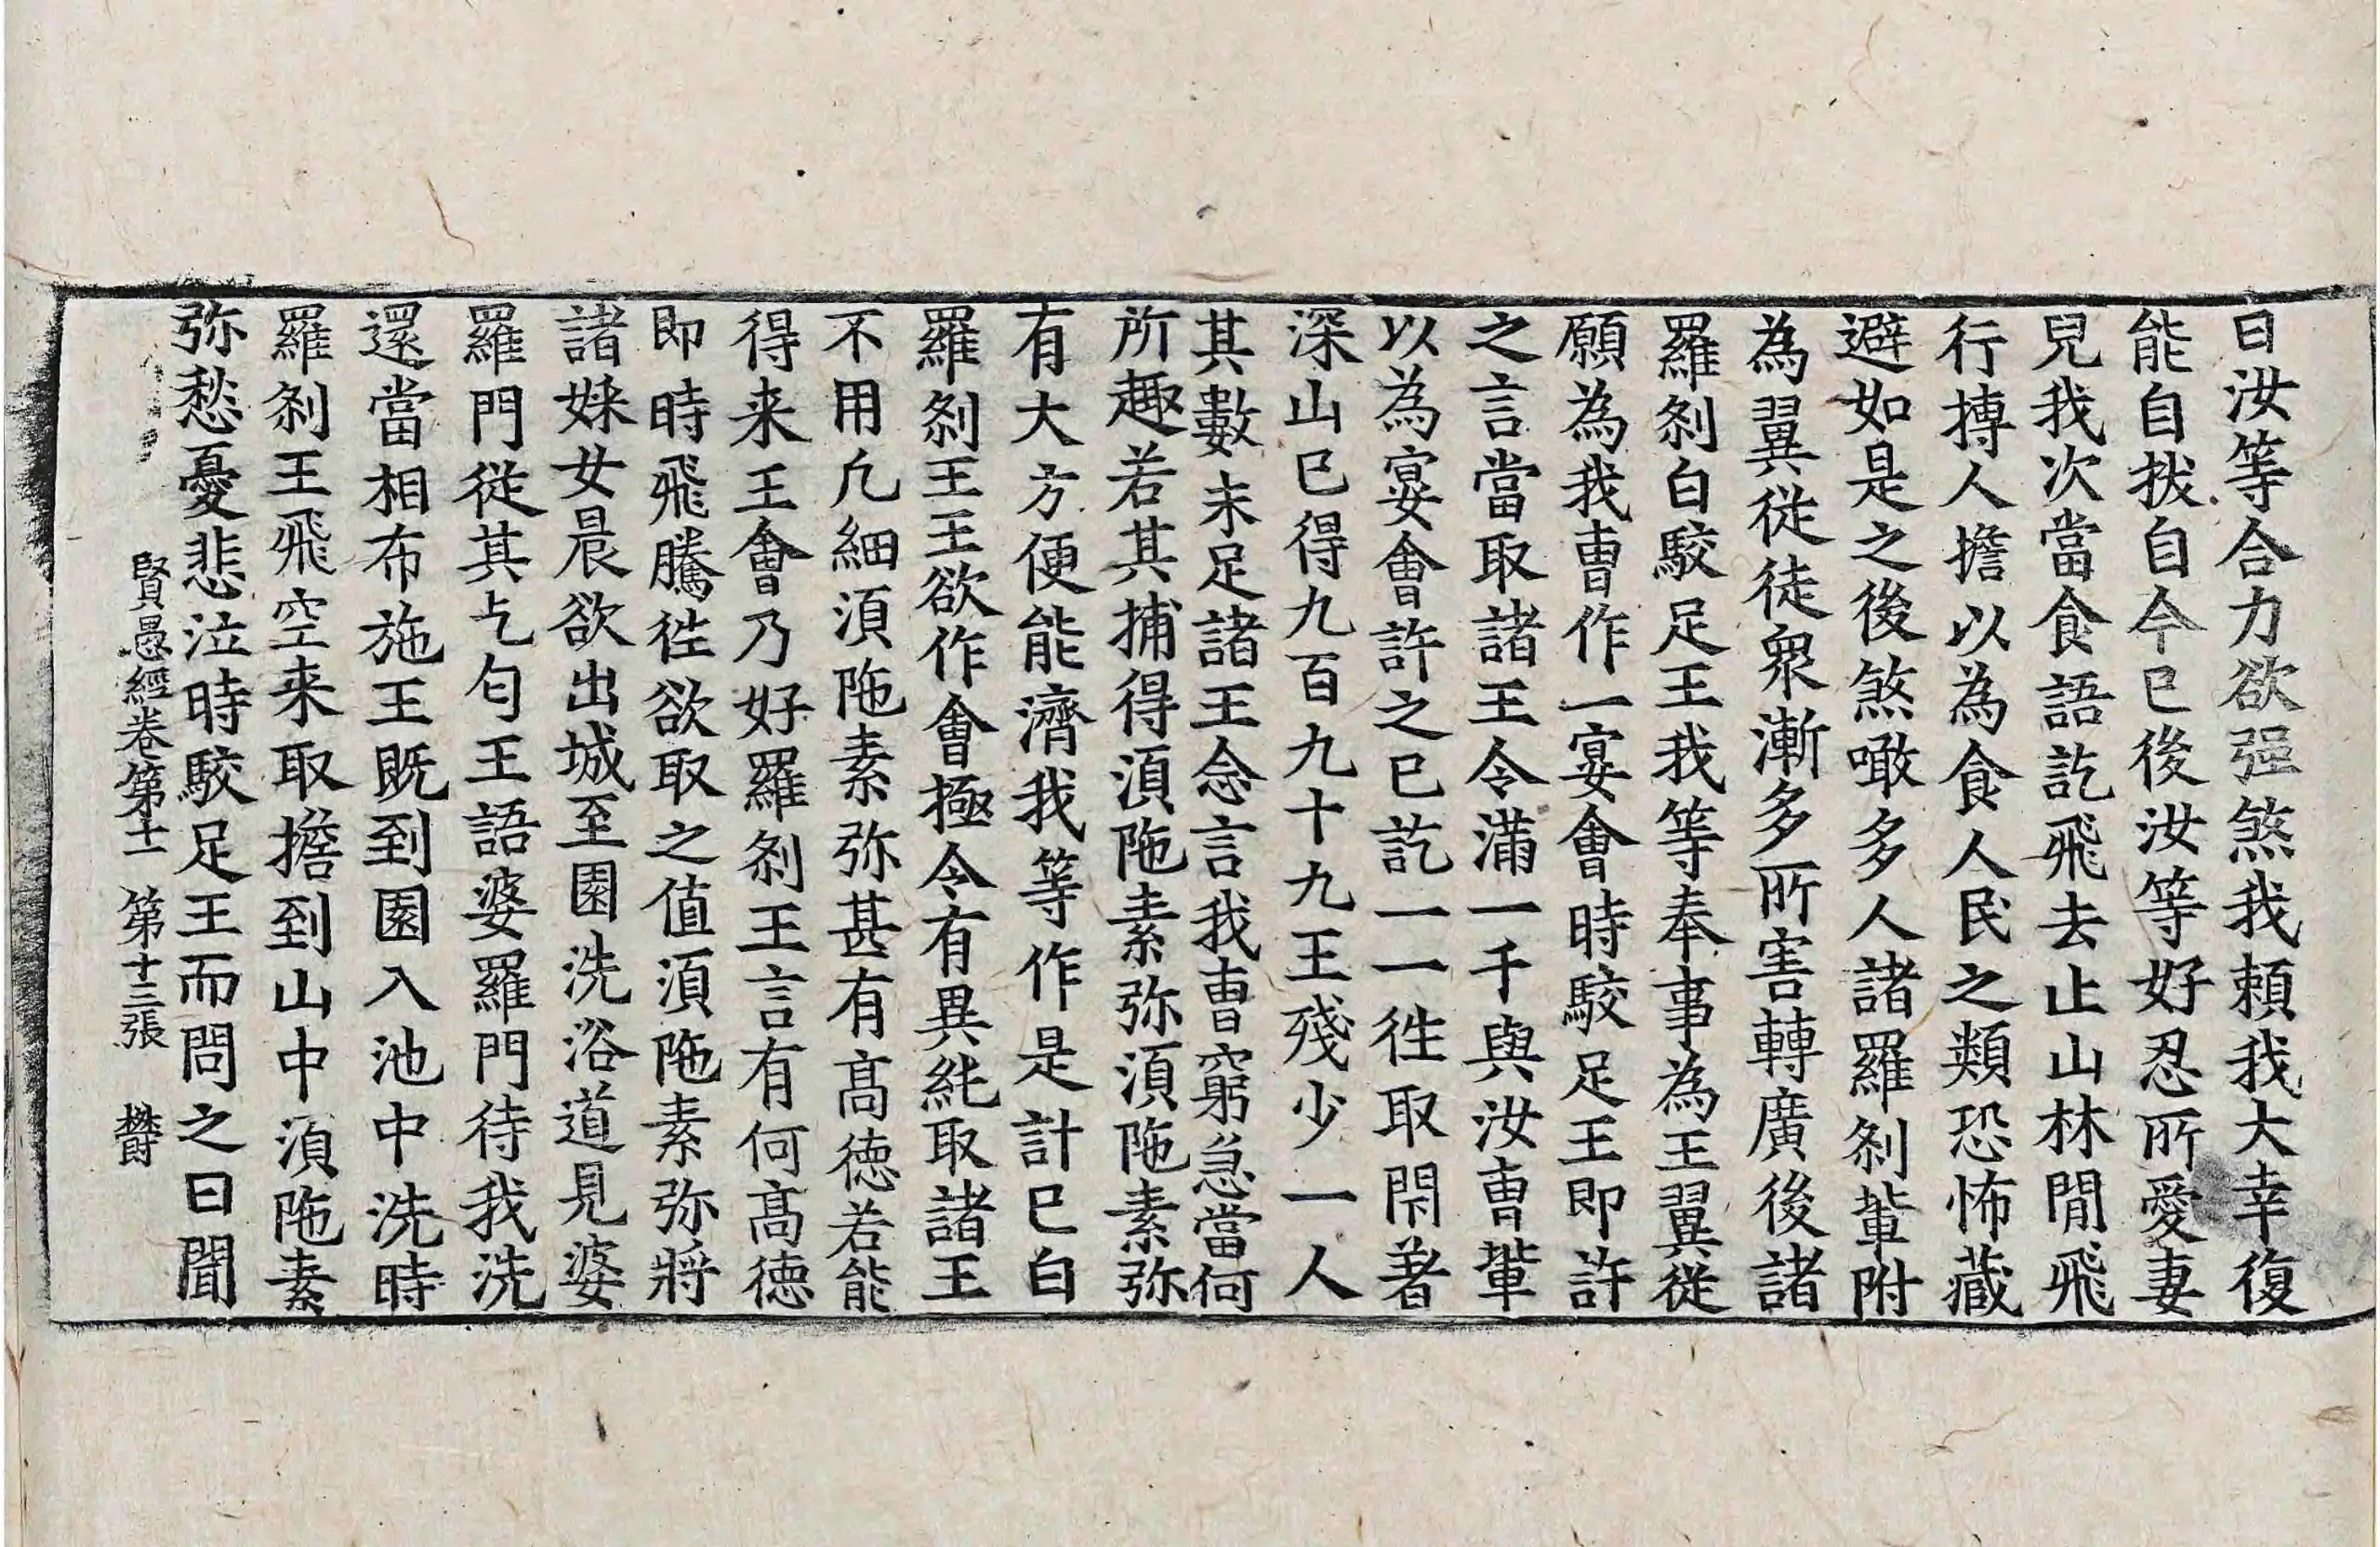 曰汝等合力欲强煞我頼我大幸復
能自拔自今已後汝等好忍所愛妻
兒我次當食語訖飛去止山林間飛
行摶人擔以為食人民之類恐怖藏
避如是之後煞噉多人諸羅刹軰附
為翼従徒衆漸多所害轉廣後諸
羅刹白駮足王我等奉事為王翼従
願為我曺作一宴㑹時駮足王即許
之言當取諸王令滿一千與汝曺軰
以為宴㑹許之已訖一一徃取閇著
深山已得九百九十九王殘少一人
其數未足諸王念言我曺窮急當何
所趣若其捕得湏陁素弥湏陁素弥
有大方便能濟我等作是計已白
羅刹王王欲作㑹極令有異純取諸王
不用凢細湏陁素弥甚有髙徳若能
得来王㑹乃好羅刹王言有何髙徳
即時飛騰徃欲取之值湏陁素弥將
諸婇女晨欲出城至園洗浴道見婆
羅門従其乞匂王語婆羅門待我洗
還當相布施王既到園入池中洗時
羅刹王飛空来取擔到山中湏陁素
弥愁憂悲泣時駮足王而問之曰聞
賢愚經卷第十一 第十三張 欎